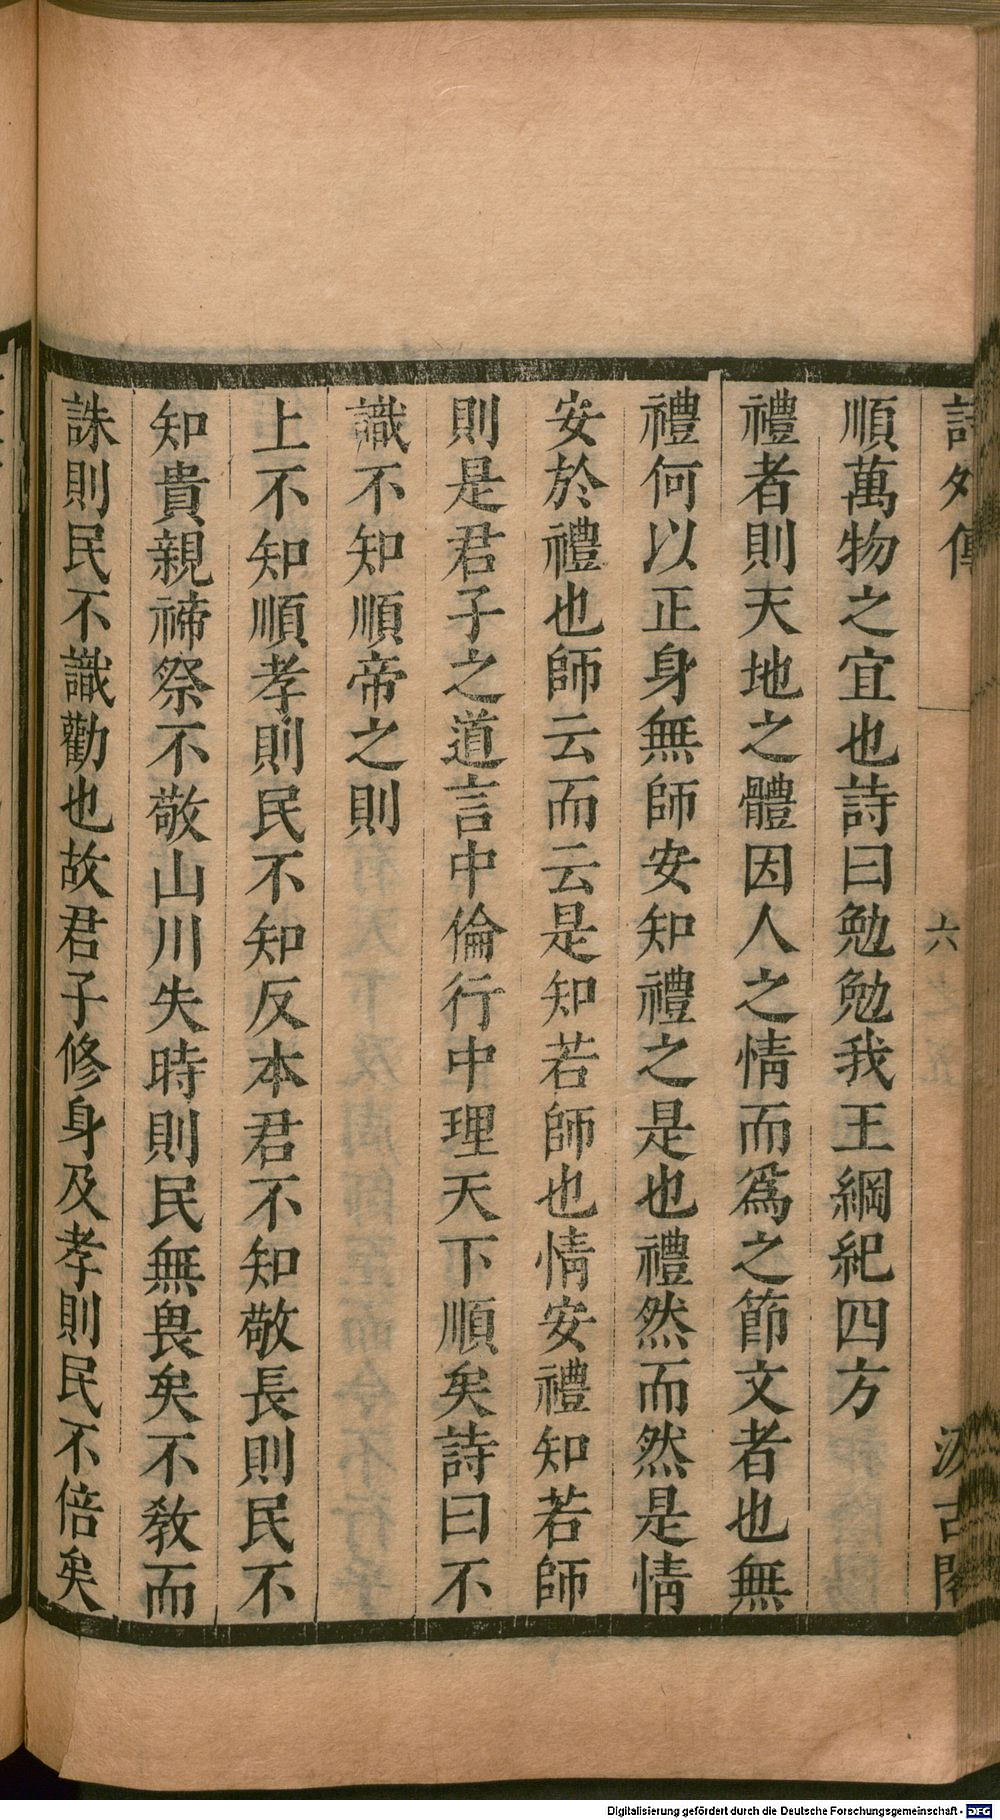 詩外傳 六 汲古閣
順萬物之宜也詩曰勉勉我王綱紀四方
禮者則天地之體因人之情而爲之節文者也無
禮何以正身無師安知禮之是也禮然而然是情
安於禮也師云而云是知若師也情安禮知若師
則是君子之道言中倫行中理天下順矣詩曰不
識不知順帝之則
上不知順孝則民不知反本君不知敬長則民不
知貴親禘祭不敬山川失時則民無畏矣不敎而
誅則民不識勸也故君子修身及孝則民不倍矣
Digitalisierung gefördert durch die Deutsche Forschungsgemeinschaft - DFG